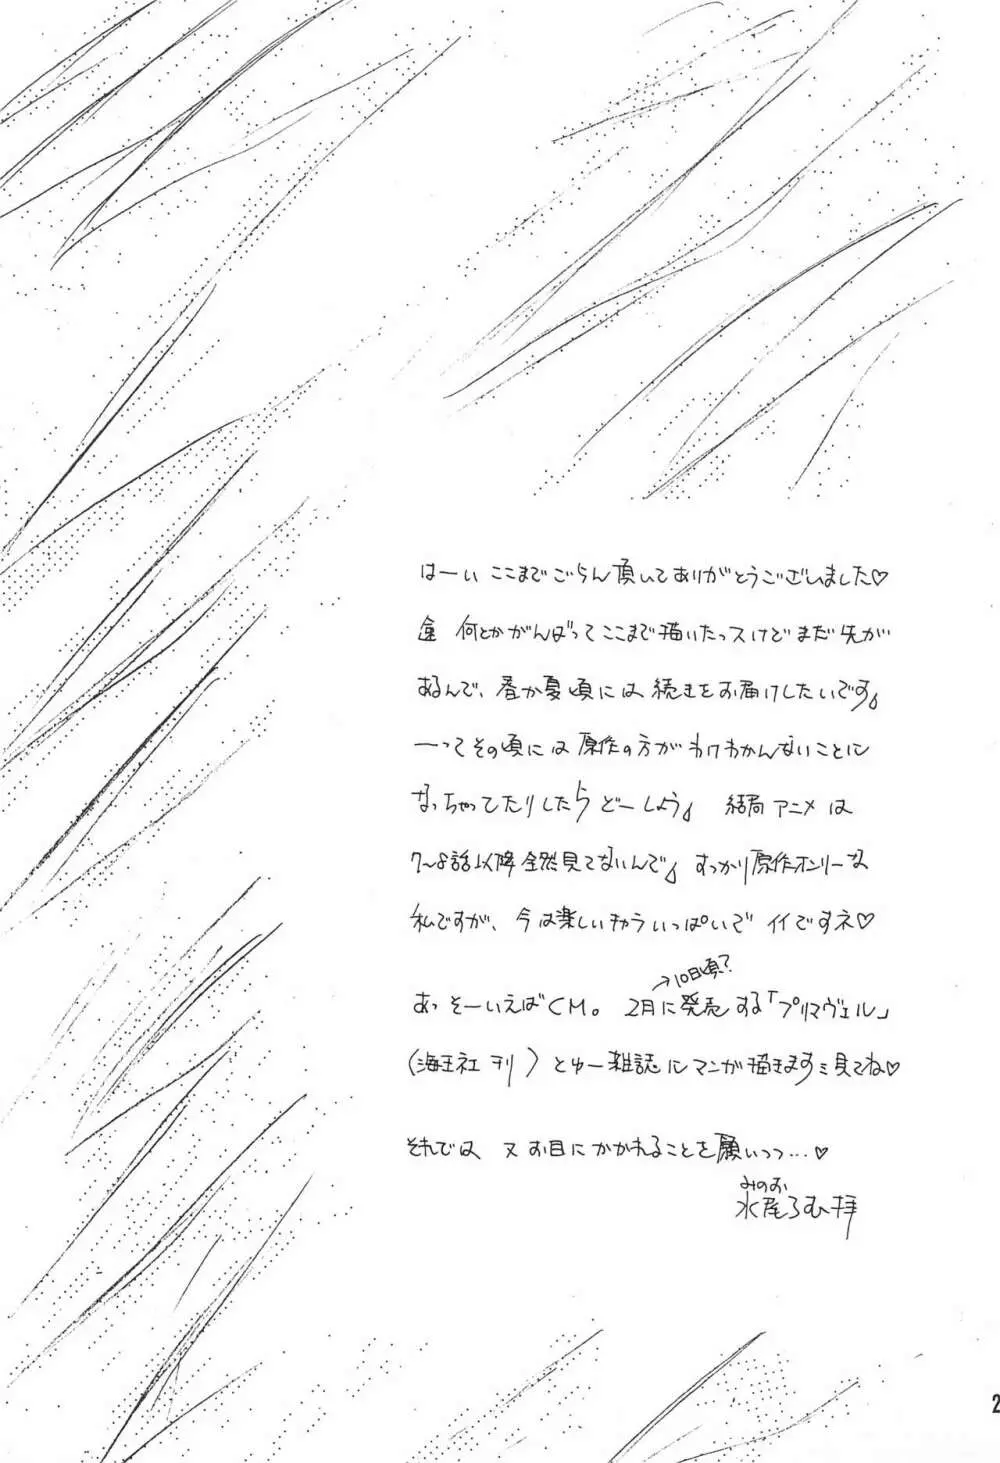 はーい ここまでごらん頂いてありがとうございました♡
何とかがんばってここまで描いたっスけどまだ先が
あるんで、春か夏頃には続きをお届けしたいです。
ーってその頃には原作の方がわけわかんないことに
なっちゃってたりしたらどーしよう。 結局アニメは
7〜8話以降全然見てないんで。すっかり原作オンリーな
私ですが、今は楽しいキャラいっぱいで イイですネ♡
→10日頃?
あっ そーいえばCM。 2月に発売する「プリマヴェル」
(海王社 刊) とゆー雑誌にマンガ描きます 見てね♡
それでは 又 お目にかかれることを願いつつ…♡
みのお
水尾ろむ拝
2